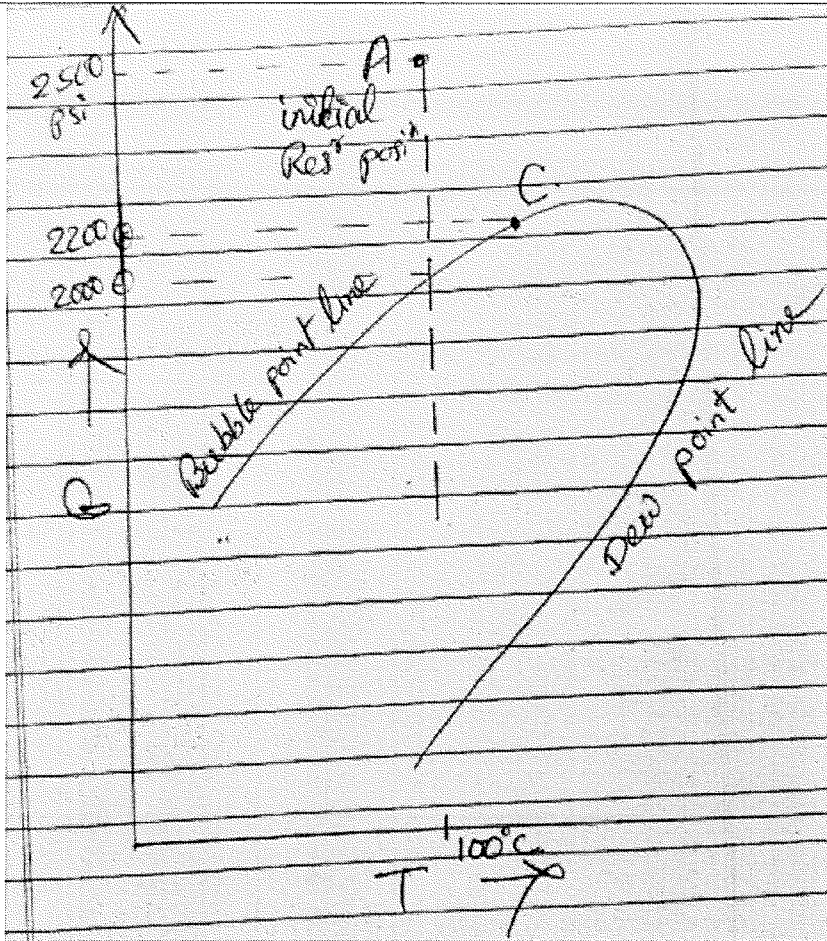 2500
psi
A
initial
Resʳ posiⁿ
C
2200
2000
Bubble point line
Dew point line
P
100°C
T